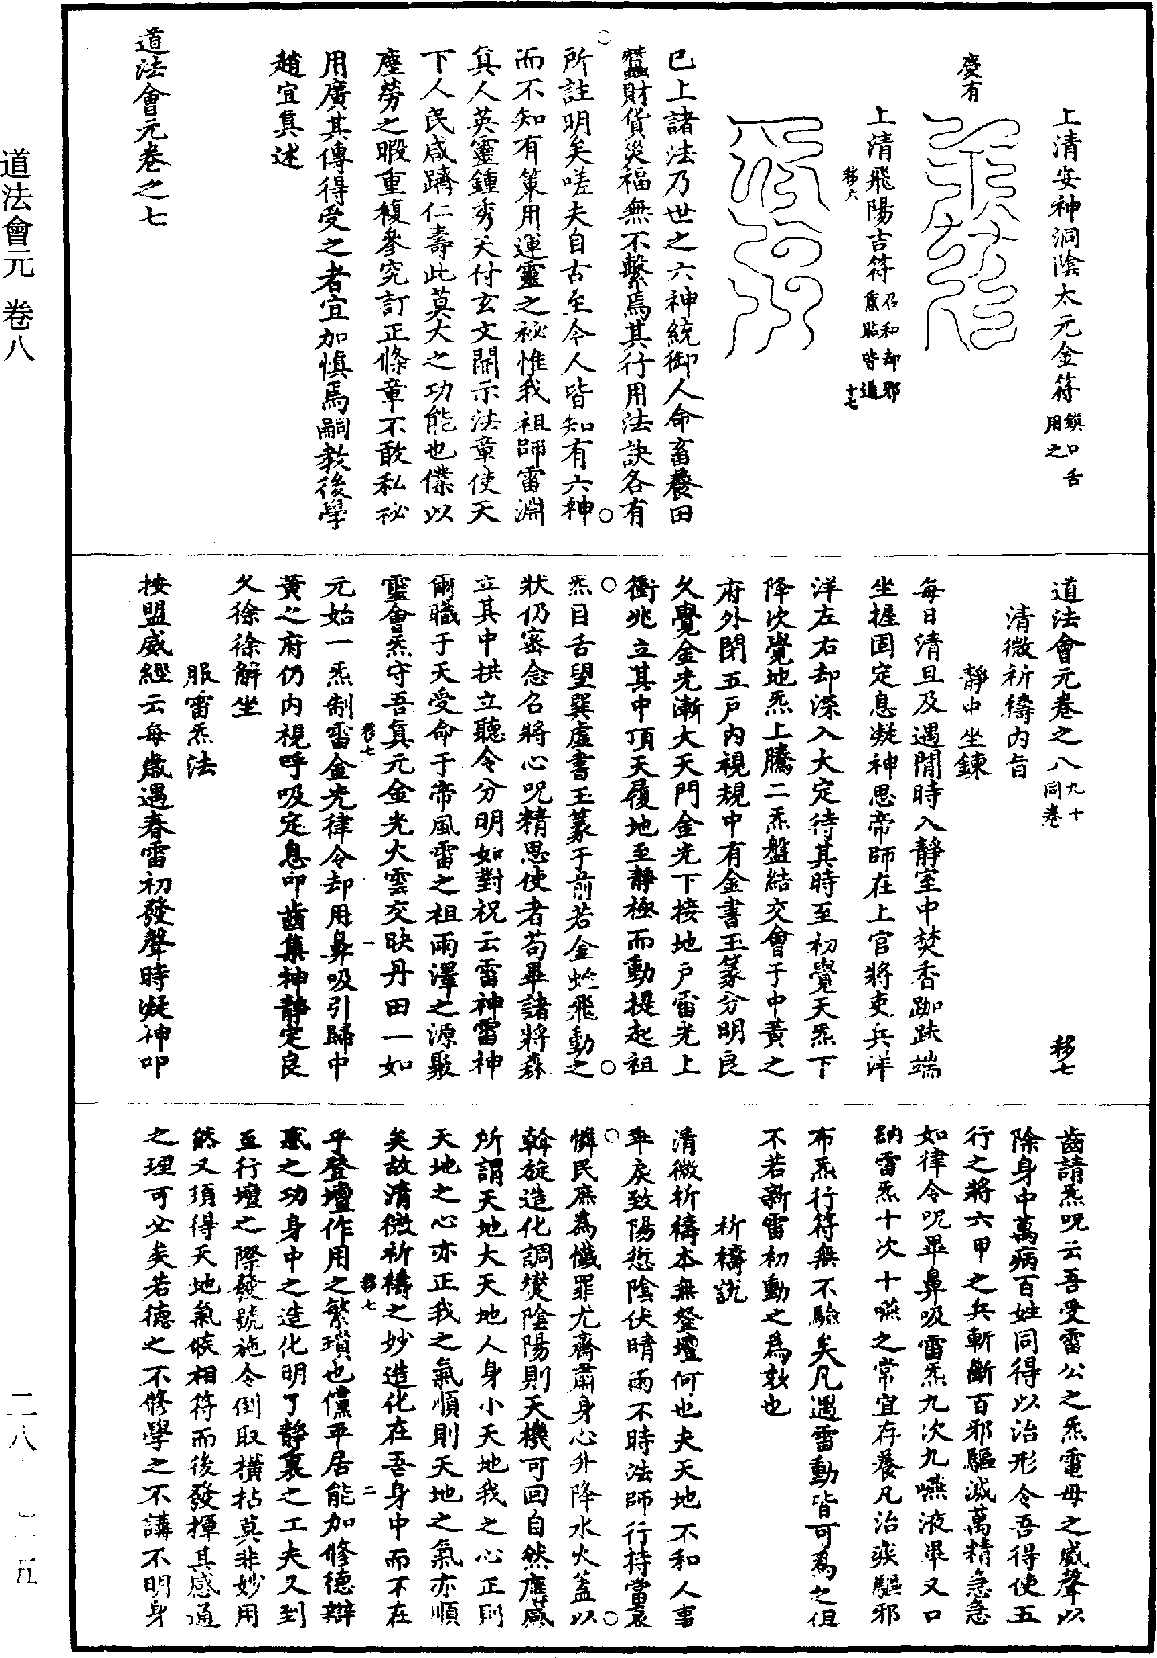 上清安神洞陰太元金符鎮口舌用之
慶有
上清飛陽吉符召和却邪
熏貼皆通
移六
十七
已上諸法乃世之六神統御人命畜養田
蠶財貨災福無不繫焉其行用法訣各有
所註明矣嗟夫自古至今人皆知有六神
而不知有策用運靈之祕惟我祖師雷淵
真人英靈鍾秀天付玄文開示法章使天
下人民咸躋仁壽此莫大之功能也僕以
塵勞之暇重複參究訂正條章不敢私祕
用廣其傳得受之者宜加慎焉嗣教後學
趙宜真述
道法會元卷之七
道法會元卷之八九十同卷
移七
清微祈禱內旨
靜中坐鍊
每日清旦及遇閒時入靜室中焚香跏趺端
坐握固定息凝神思帝師在上官將吏兵洋
洋左右却深入大定待其時至初覺天炁下
降次覺地炁上騰二炁盤結交會于中黃之
府外閉五戶內視規中有金書玉篆分明良
久覺金光漸大天門金光下接地戶雷光上
衝兆立其中頂天履地至靜極而動提起祖
炁目舌望巽虛書玉篆于前若金蛇飛動之
狀仍密念召將心呪精思使者苟畢諸將森
立其中拱立聽令分明如對祝云雷神雷神
爾職于天受命于帝風雷之祖雨澤之源聚
靈會炁守吾真元金光大雲交映丹田一如
移七
一
元始一炁制雷金光律令却用鼻吸引歸中
黃之府仍內視呼吸定息叩齒集神靜定良
久徐徐解坐
服雷炁法
按盟威經云每歲遇春雷初發聲時凝神叩
齒請炁呪云吾受雷公之炁電母之威聲以
除身中萬病百姓同得以治形令吾得使五
行之將六甲之兵斬斷百邪驅滅萬精急急
如律令呪畢鼻吸雷炁九次九嚥液畢又口
納雷炁十次十嚥之常宜存養凡治疾驅邪
布炁行符無不驗矣凡遇雷動皆可為之但
不若新雷初動之為效也
祈禱說
清微祈禱本無登壇何也夫天地不和人事
乖戾致陽愆陰伏晴雨不時法師行持當哀
憐民庶為懺罪尤齋肅身心升降水火蓋以
斡旋造化調燮陰陽則天機可回自然應感
所謂天地大天地人身小天地我之心正則
天地之心亦正我之氣順則天地之氣亦順
矣故清微祈禱之妙造化在吾身中而不在
移七
二
乎登壇作用之繁瑣也儻平居能加修德辯
惑之功身中之造化明了靜裏之工夫又到
至行壇之際發號施令倒取橫拈莫非妙用
然又須得天地氣候相符而後發揮其感通
之理可必矣若德之不修學之不講不明身
道法會元 卷八
二八
五